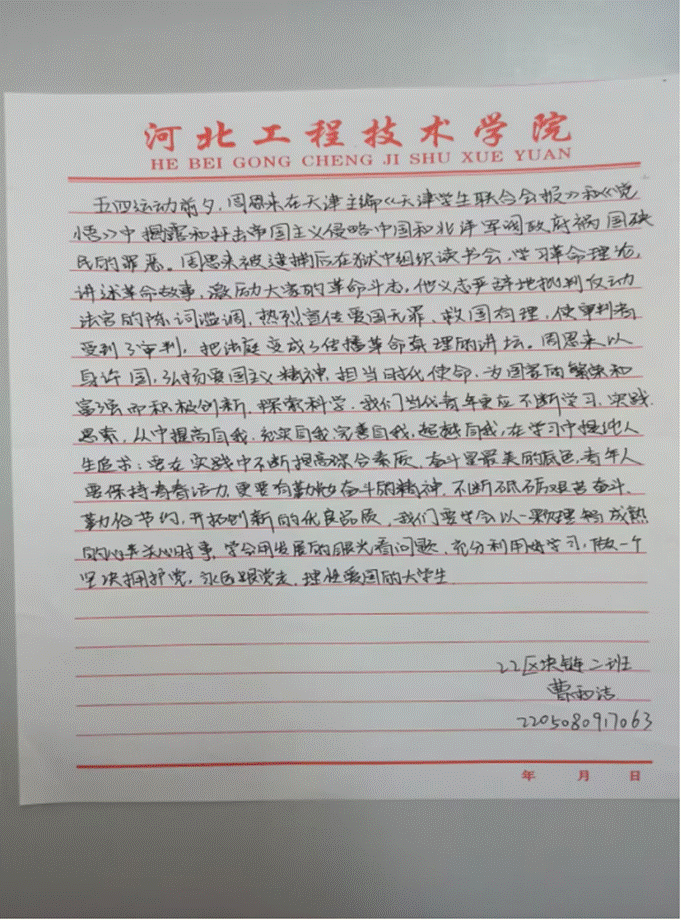 河北工程技术学院
HE BEI GONG CHENG JI SHU XUE YUAN
五四运动前夕,周恩来在天津主编《天津学生联合会报》和《觉
悟》中揭露和抨击帝国主义侵略中国和北洋军阀政府祸国殃
民的罪恶。周恩来被逮捕后在狱中组织读书会,学习革命理论,
讲述革命故事,激励大家的革命斗志,他义正严辞地批判反动
法官的陈词滥调,热烈宣传爱国无罪、救国有理,使审判者
受到了审判,把法庭变成了传播革命真理的讲坛。周恩来以
身许国,弘扬爱国主义精神,担当时代使命,为国家的繁荣和
富强而积极创新,探索科学,我们当代青年更应不断学习,实践
思索,从中提高自我,充实自我,完善自我,超越自我,在学习中提炼人
生追求;要在实践中不断提高综合素质,奋斗是最美的底色,青年人
要保持青春活力,更要有勤勉奋斗的精神,不断砥砺艰苦奋斗、
勤俭节约,开拓创新的优良品质,我们要学会以一颗理智成熟
的心来关心时事,学会用发展的眼光看问题,充分利用好学习,做一个
坚决拥护党,永远跟党走,理性爱国的大学生
22区块链二班
曹雨洁
2205080917063
年 月 日